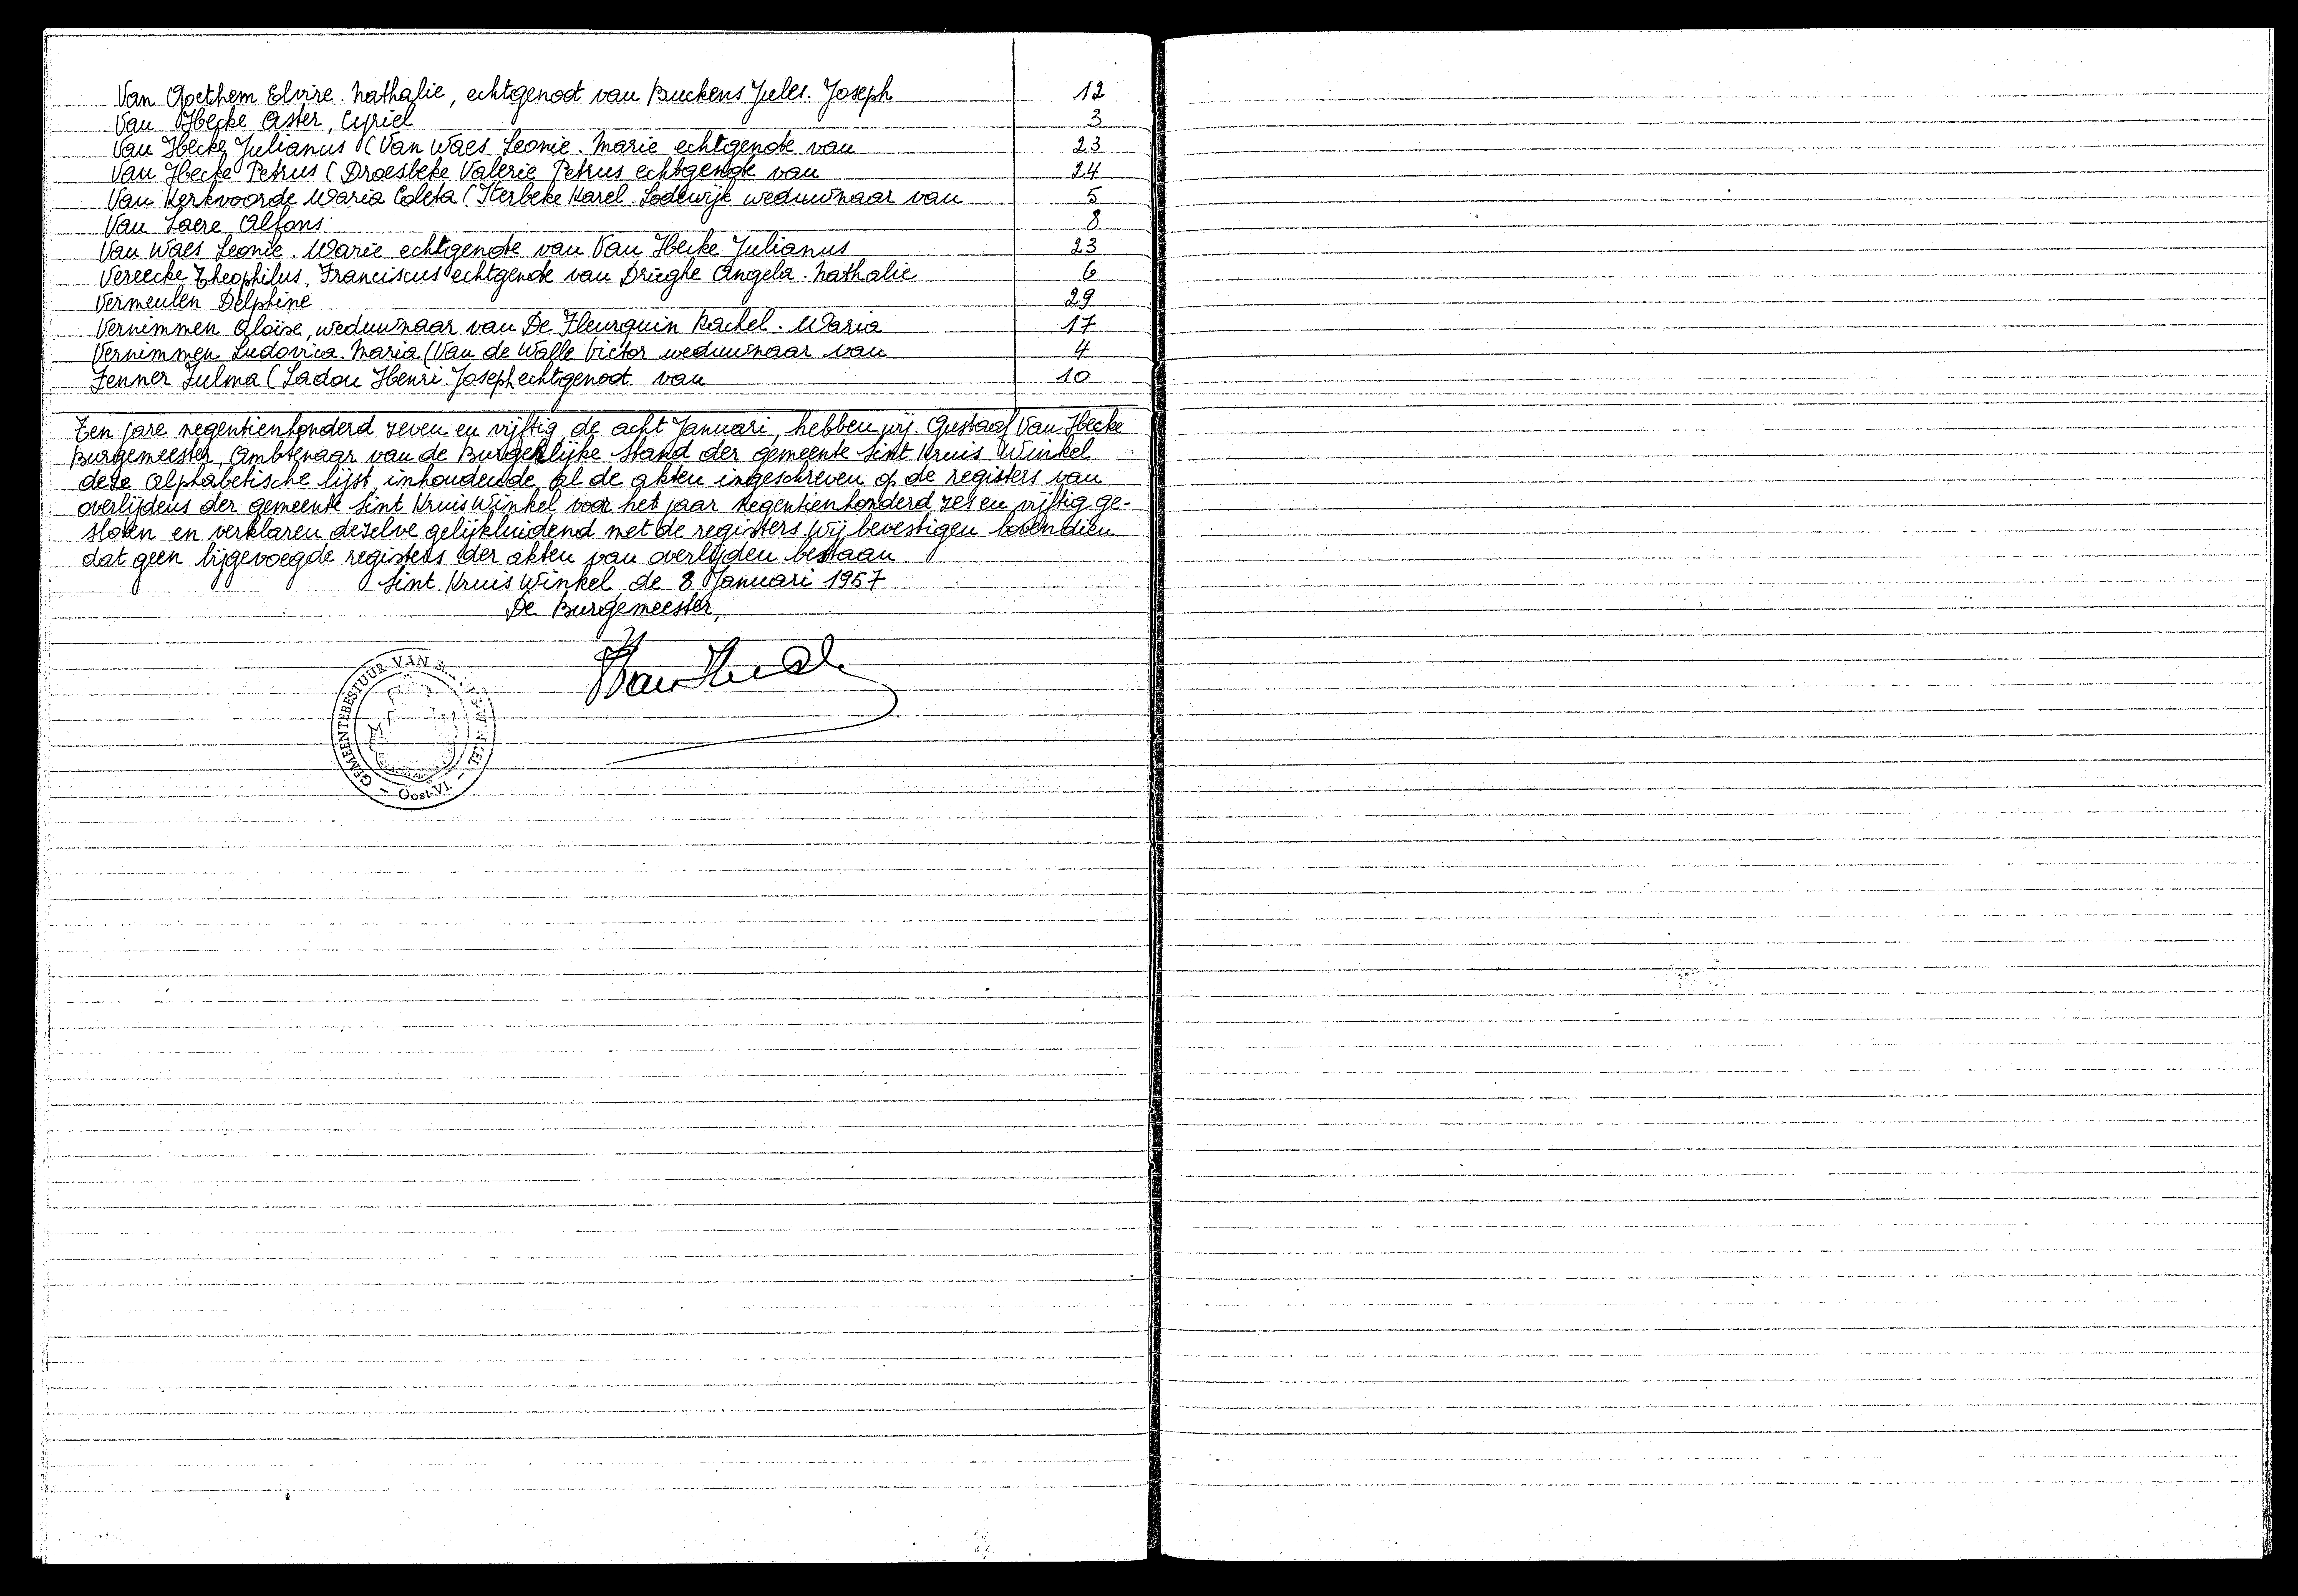 Van Goethem Elvire. Nathalie, echtgenoot van Buckens Jules. Joseph 12
Van Hecke Aster, Cyriel 3
Van Hecke Julianus (Van Waes Leonie. Marie echtgenote van 23
Van Hecke Petrus (Droesbeke Valerie Petrus echtgenote van 24
Van Kerkvoorde Maria Coleta (Sterbeke Karel. Lodewijk weduwnaar van 5
Van Laere Alfons 8
Van Waes Leonie. Marie echtgenote van Van Hecke Julianus 23
Vereecke Theophilus, Franciscus echtgenote van Drieghe Angela. Nathalie 6
Vermeulen Delphine 29
Vernimmen Aloïse, weduwnaar van De Fleurquin Rachel. Maria 17
Vernimmen Ludovica. Maria (Van de Walle Victor weduwnaar van 4
Zenner Zulma (Ladou Henri. Joseph echtgenoot van 10
Ten jare negentienhonderd zeven en vijftig de acht Januari, hebben wij. Gustaaf Van Hecke
Burgemeester, Ambtenaar van de Burgerlijke Stand der gemeente Sint Kruis Winkel
deze alphabetische lijst, inhoudende al de akten ingeschreven op de registers van
overlijdens der gemeente Sint Kruis Winkel voor het jaar negentienhonderd zes en vijftig ge-
sloten en verklaren dezelve gelijkluidend met de registers Wij bevestigen bovendien
dat geen bijgevoegde registers der akten van overlijden bestaan
Sint Kruis Winkel, de 8 Januari 1957
De Burgemeester,
Van Hecke
GEMEENTEBESTUUR VAN WINKEL
- Oost-Vl. -